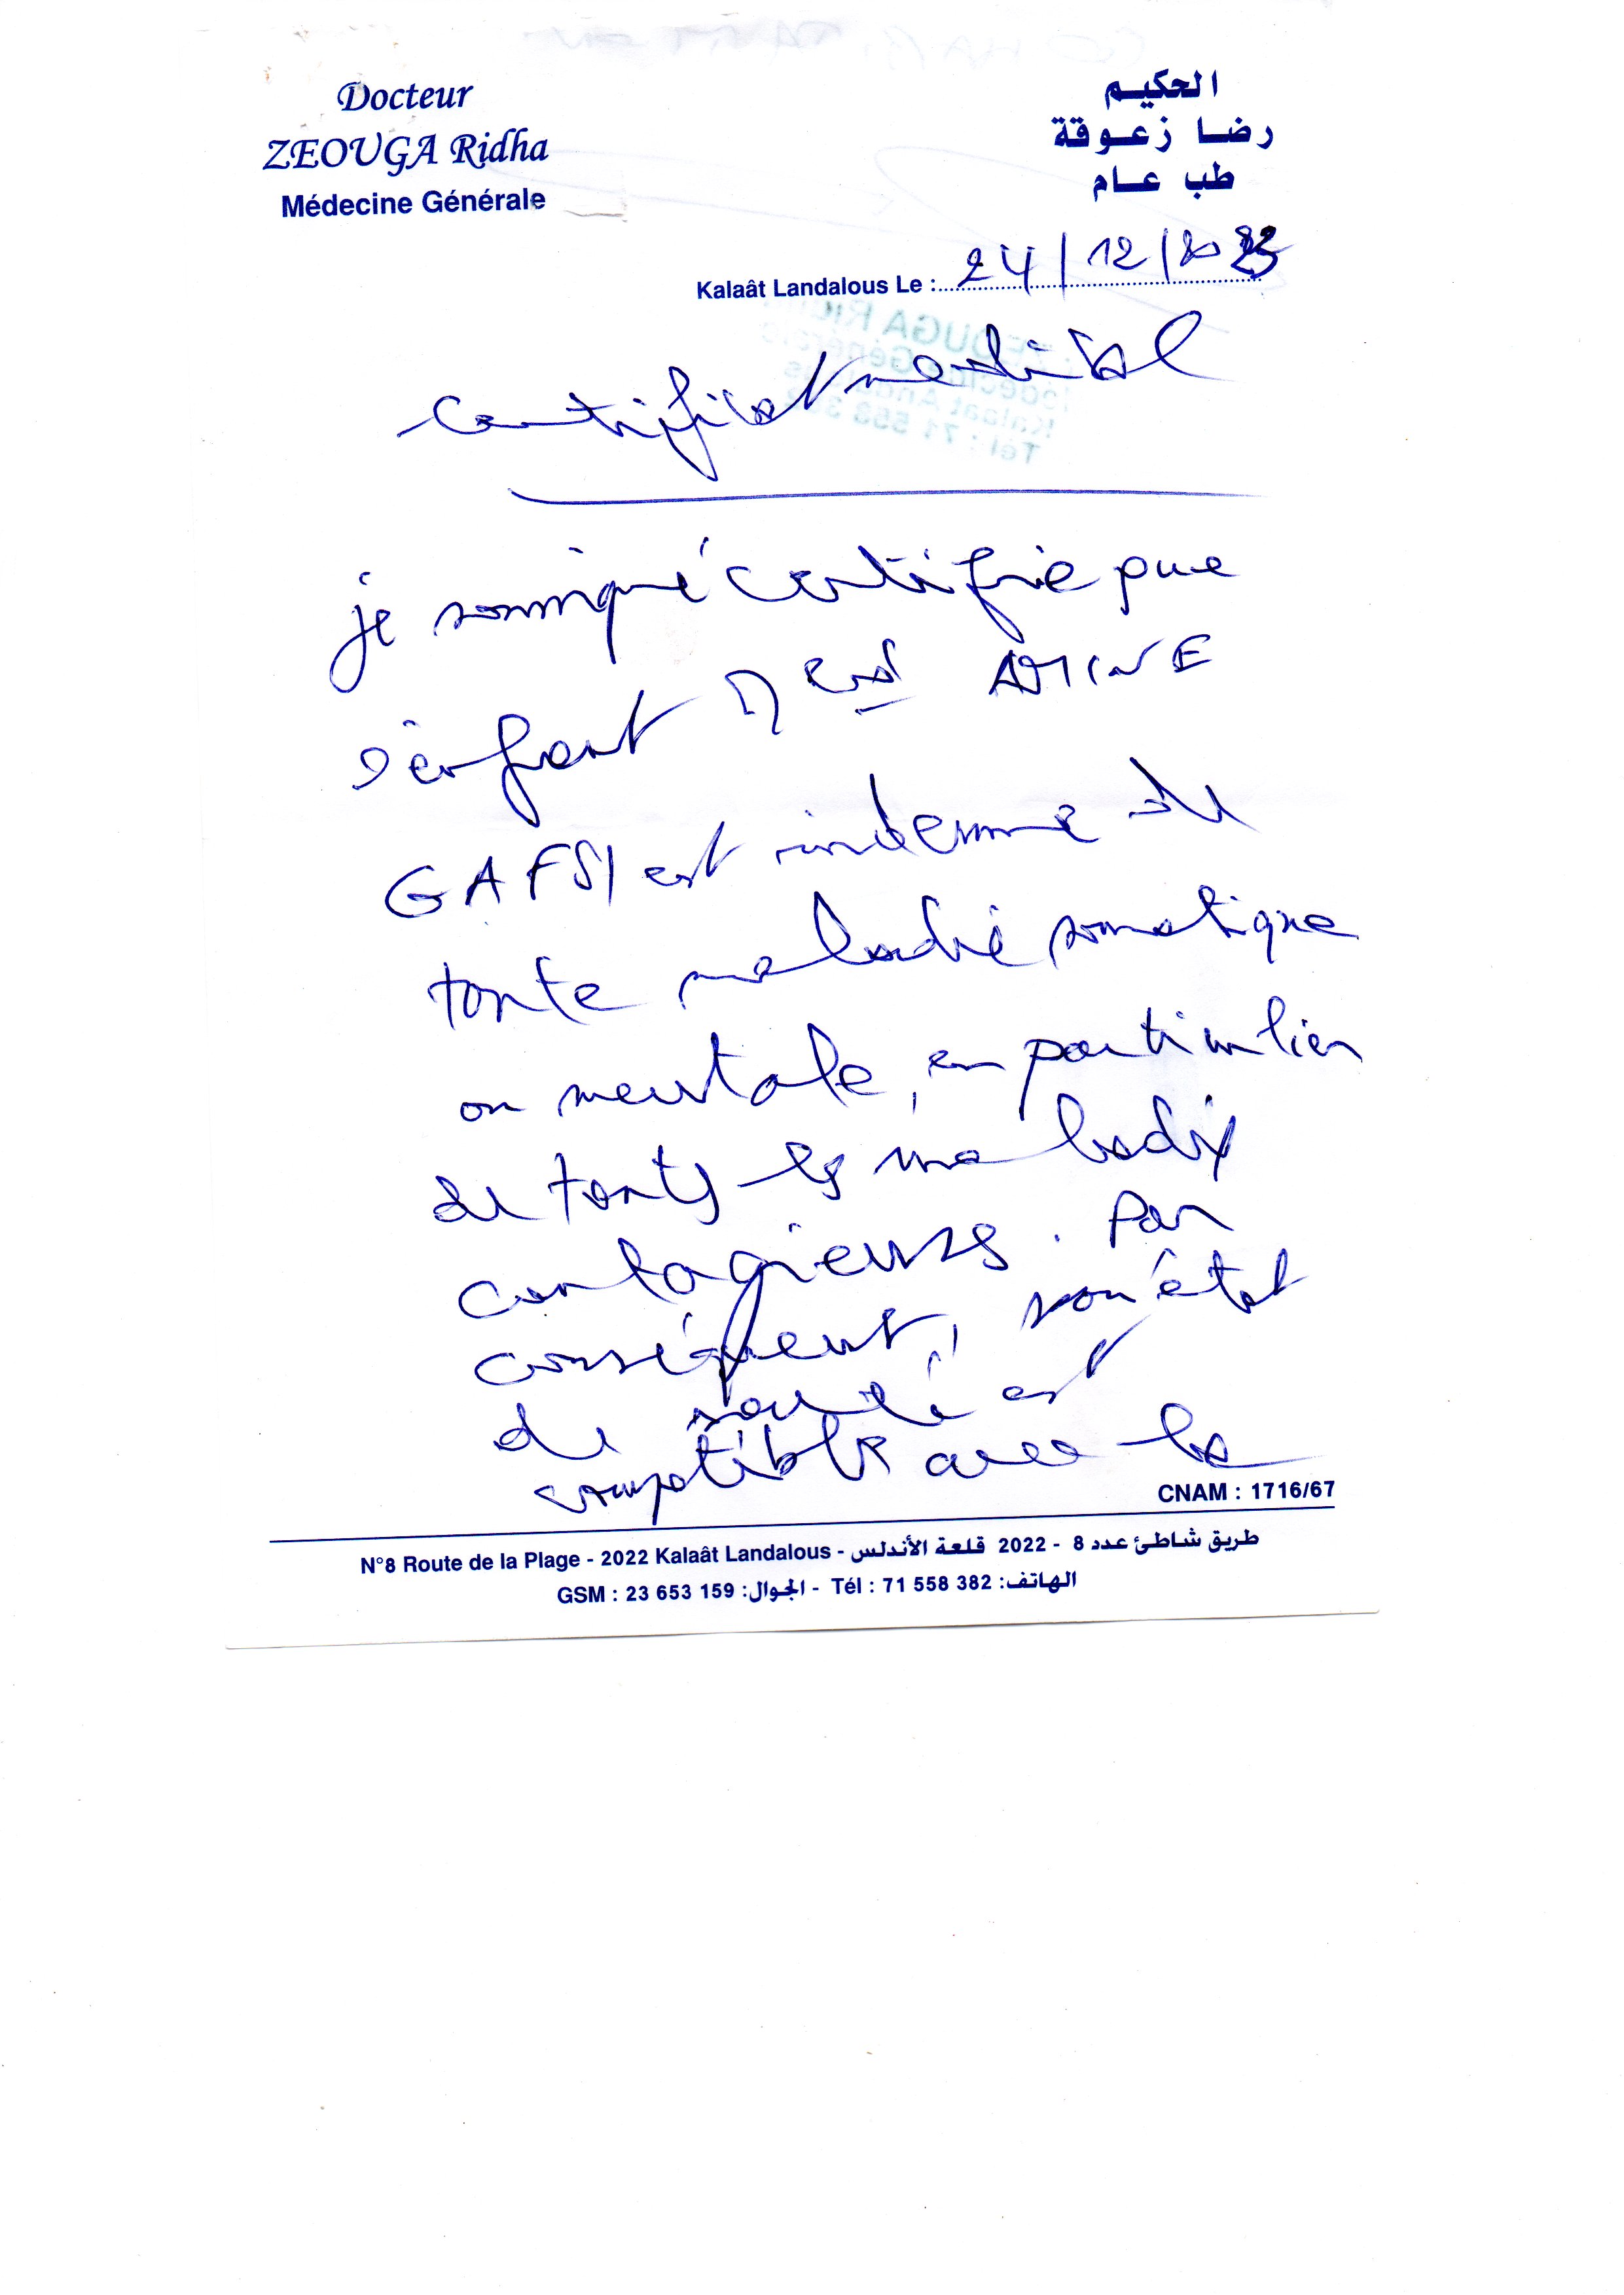 Docteur
ZEOUGA Ridha
Médecine Générale
الحكيم
رضا زعوقة
طب عام
Kalaât Landalous Le : 24/12/2023
certificat médical
je soussigné certifie que
l'enfant Med AMINE
GAFSI est indemne de
toute maladie somatique
ou mentale, en particulier
de toutes les maladies
contagieuses. Par
conséquent, son état
de santé est
compatible avec la
CNAM : 1716/67
N°8 Route de la Plage - 2022 Kalaât Landalous - طريق شاطئ عدد 8 - 2022 قلعة الأندلس
GSM : 23 653 159 :الجوال - Tél : 71 558 382 :الهاتف